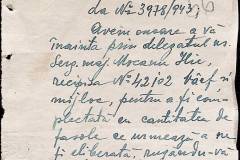 la No 3978/943;
Avem onoare a vă
înainta prin delegatul ns.
Serg. maj. Mocanu Ilie,
recipisa No 42102 băef și
mij loc, pentru a fi com-
plectată cu cantitatea de
fasole ce urmează a ne
fi eliberată, rugându-vă